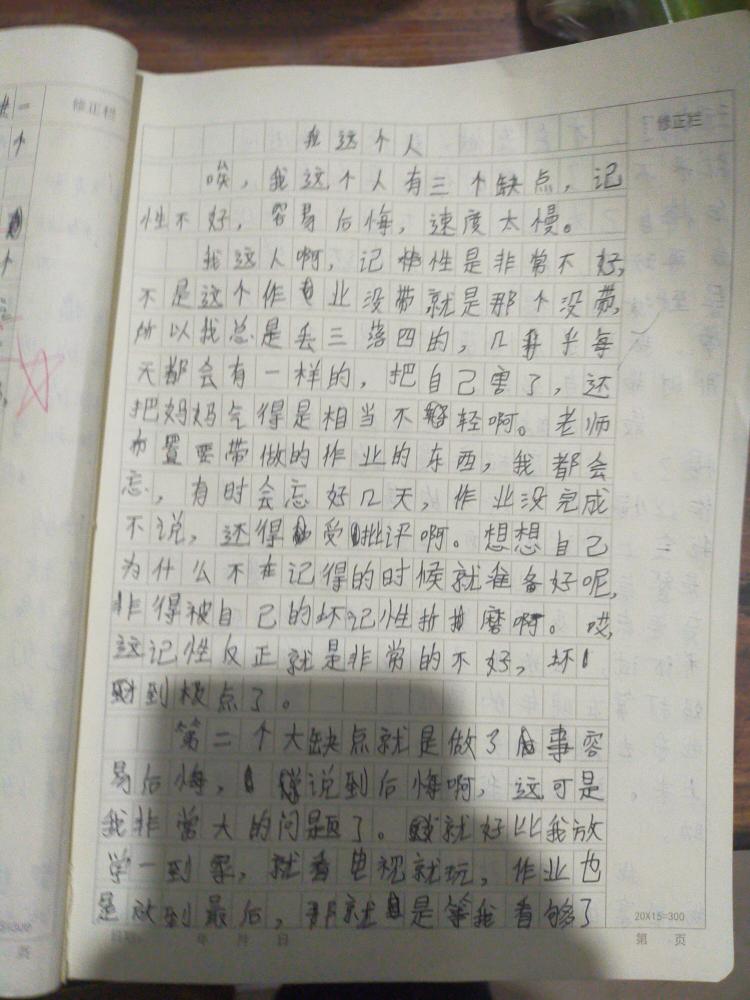 修正栏
修正栏
我这个人
唉，我这个人有三个缺点，记
性不好，容易后悔，速度太慢。
我这人啊，记性是非常不好，
不是这个作业没带就是那个没带，
所以我总是丢三落四的，几乎每
天都会有一样的，把自己害了，还
把妈妈气得是相当不轻啊。老师
布置要带做的作业的东西，我都会
忘，有时会忘好几天，作业没完成
不说，还得受批评啊。想想自己
为什么不在记得的时候就准备好呢，
非得被自己的坏记性折磨啊。哎，
这记性反正就是非常的不好，坏
到极点了。
第二个大缺点就是做了事容
易后悔，说到后悔啊，这可是
我非常大的问题了。就好比我放
学一到家，就看电视就玩，作业也
是放到最后，那就是等我看够了
20X15=300
年 月 日
第 页
页